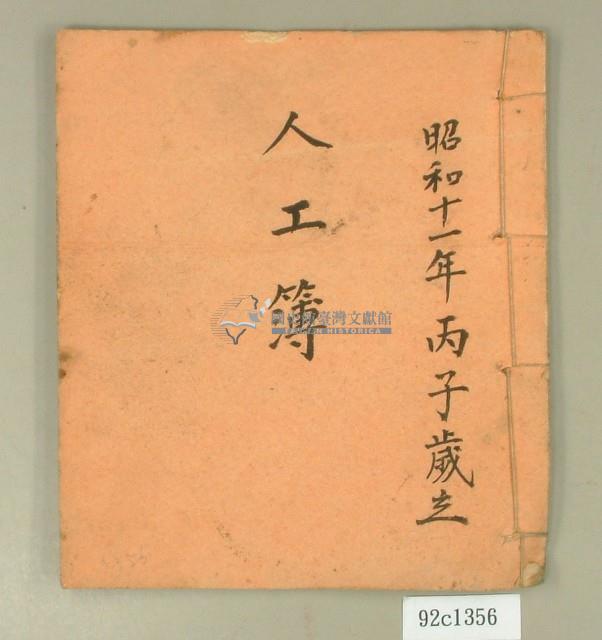 昭和十一年丙子歲立
人工簿
國史館臺灣文獻館
TAIWAN HISTORICA
92c1356